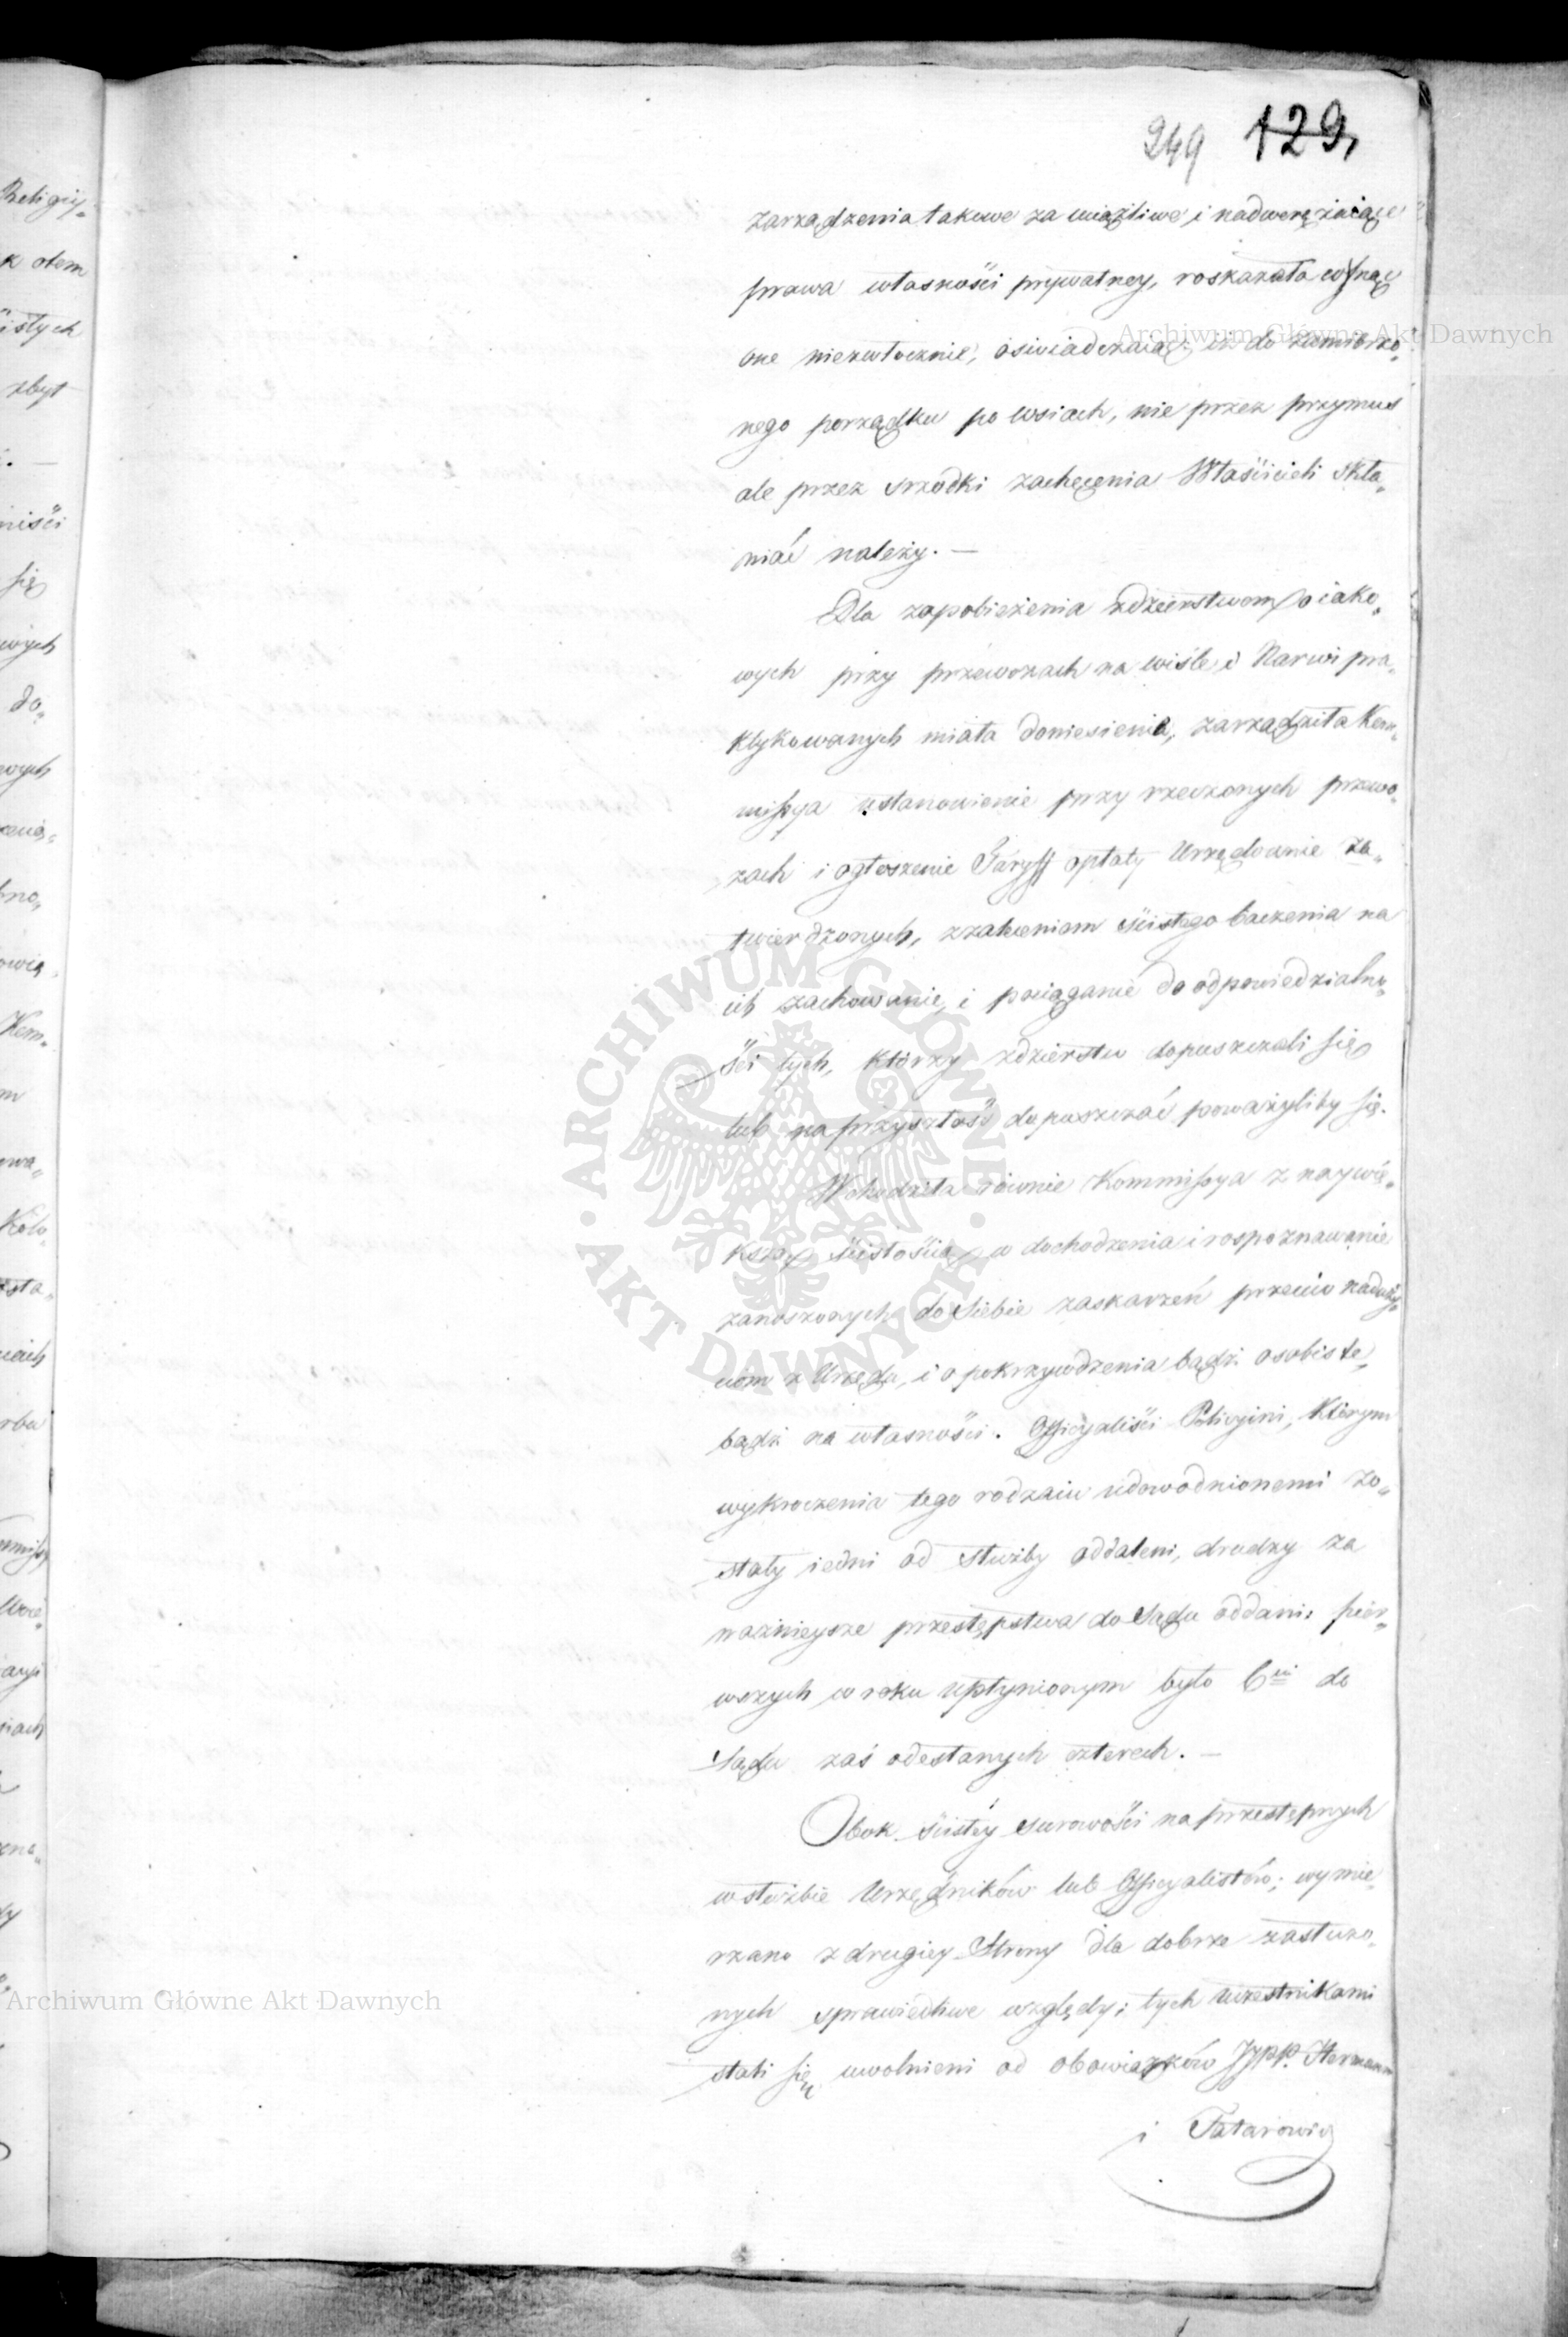 249 129,
zarządzenia takowe za uciążliwe i nadwerężaiące
prawa własności prywatney, roskazała cofnąć
one niezwłocznie, oświadczaiąc; iż do zamierzo„
nego porządku po wsiach, nie przez przymus
ale przez srzodki zachęcenia Właścicieli skła„
niać należy. —
Dla zapobieżenia zdzierstwom o iako„
wych przy przewozach na wiśle i Narwi pra„
ktykowanych miała doniesienia, zarządziła Kom„
missya ustanowienie przy rzeczonych przewo„
zach i ogłoszenie Taryff opłaty Urzędownie za„
twierdzonych, z zaleceniem ścisłego baczenia na
ich zachowanie, i pociąganie do odpowiedzialno„
ści tych, którzy zdzierstw dopuszczali się
lub na przyszłość dopuszczać poważyliby się.
Wchodziła równie Kommissya z naywię„
kszą ścisłością w dochodzenia i rospoznawanie
zanoszonych do Siebie zaskarzeń przeciw naduży„
ciom z Urzędu, i o pokrzywdzenia bądź osobiste,
bądź na własności. Officyaliści Policyini, którym
wykroczenia tego rodzaiu udowodnionemi zo„
stały iedni od służby oddaleni, drudzy za
ważnieysze przestępstwa do Sądu oddani; pier„
wszych w roku upłynionym było 6ciu do
Sądu zaś odesłanych czterech. —
Obok ścisłéy surowości na przestępnych
w służbie Urzędników lub Officyalistów; wymie„
rzano z drugiey Strony dla dobrze zasłużo„
nych sprawiedliwe względy; tych uczestnikami
stali się uwolnieni od obowiązków JJPP. Herman
i Tatarowicz
Religiy„
otem
isłych
zbyt
się
wych
do„
Kom„
Archiwum Główne Akt Dawnych
ARCHIWUM GŁÓWNE AKT DAWNYCH
Archiwum Główne Akt Dawnych